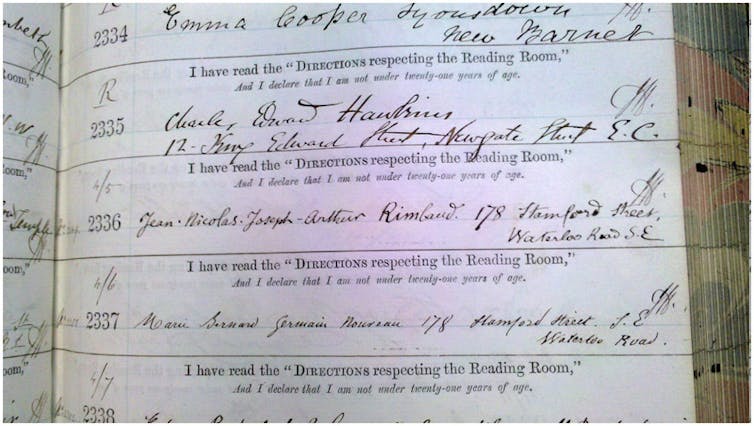 2334 Emma Cooper Lyonsdown
New Barnet
I have read the "DIRECTIONS respecting the Reading Room,"
And I declare that I am not under twenty-one years of age.
R
2335 Charles Edward Hawkins
12 King Edward Street, Newgate Street E.C.
I have read the "DIRECTIONS respecting the Reading Room,"
And I declare that I am not under twenty-one years of age.
4/5
2336 Jean-Nicolas-Joseph-Arthur Rimbaud. 178 Stamford Street,
Waterloo Road S.E
I have read the "DIRECTIONS respecting the Reading Room,"
And I declare that I am not under twenty-one years of age.
4/6
2337 Marie Bernard Germain Nouveau 178 Stamford Street. S.E
Waterloo Road.
I have read the "DIRECTIONS respecting the Reading Room,"
And I declare that I am not under twenty-one years of age.
4/7
2338